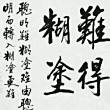 難得
糊塗
聰明難糊塗難由聰
明而轉入糊塗更難